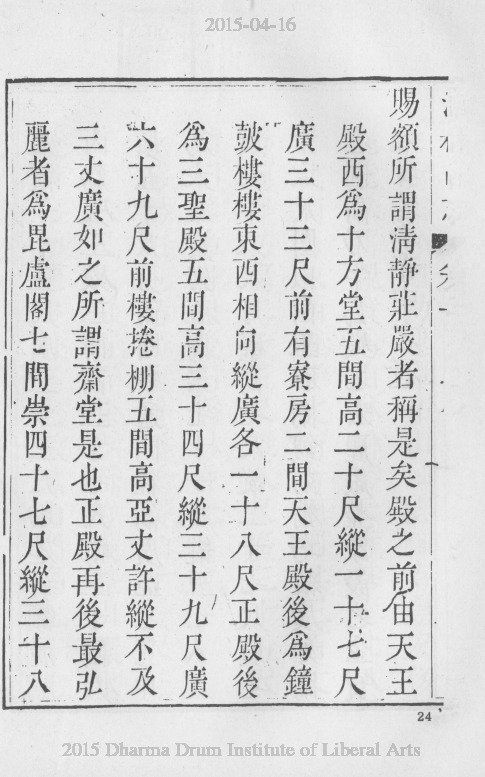 2015-04-16
賜額所謂清靜莊嚴者稱是矣殿之前由天王
殿西爲十方堂五間高二十尺縱一十七尺
廣三十三尺前有寮房二間天王殿後爲鐘
皷樓樓東西相向縱廣各一十八尺正殿後
爲三聖殿五間高三十四尺縱三十九尺廣
六十九尺前樓捲棚五間高亞丈許縱不及
三丈廣如之所謂齋堂是也正殿再後最弘
麗者爲毘盧閣七間崇四十七尺縱三十八
24
2015 Dharma Drum Institute of Liberal Arts